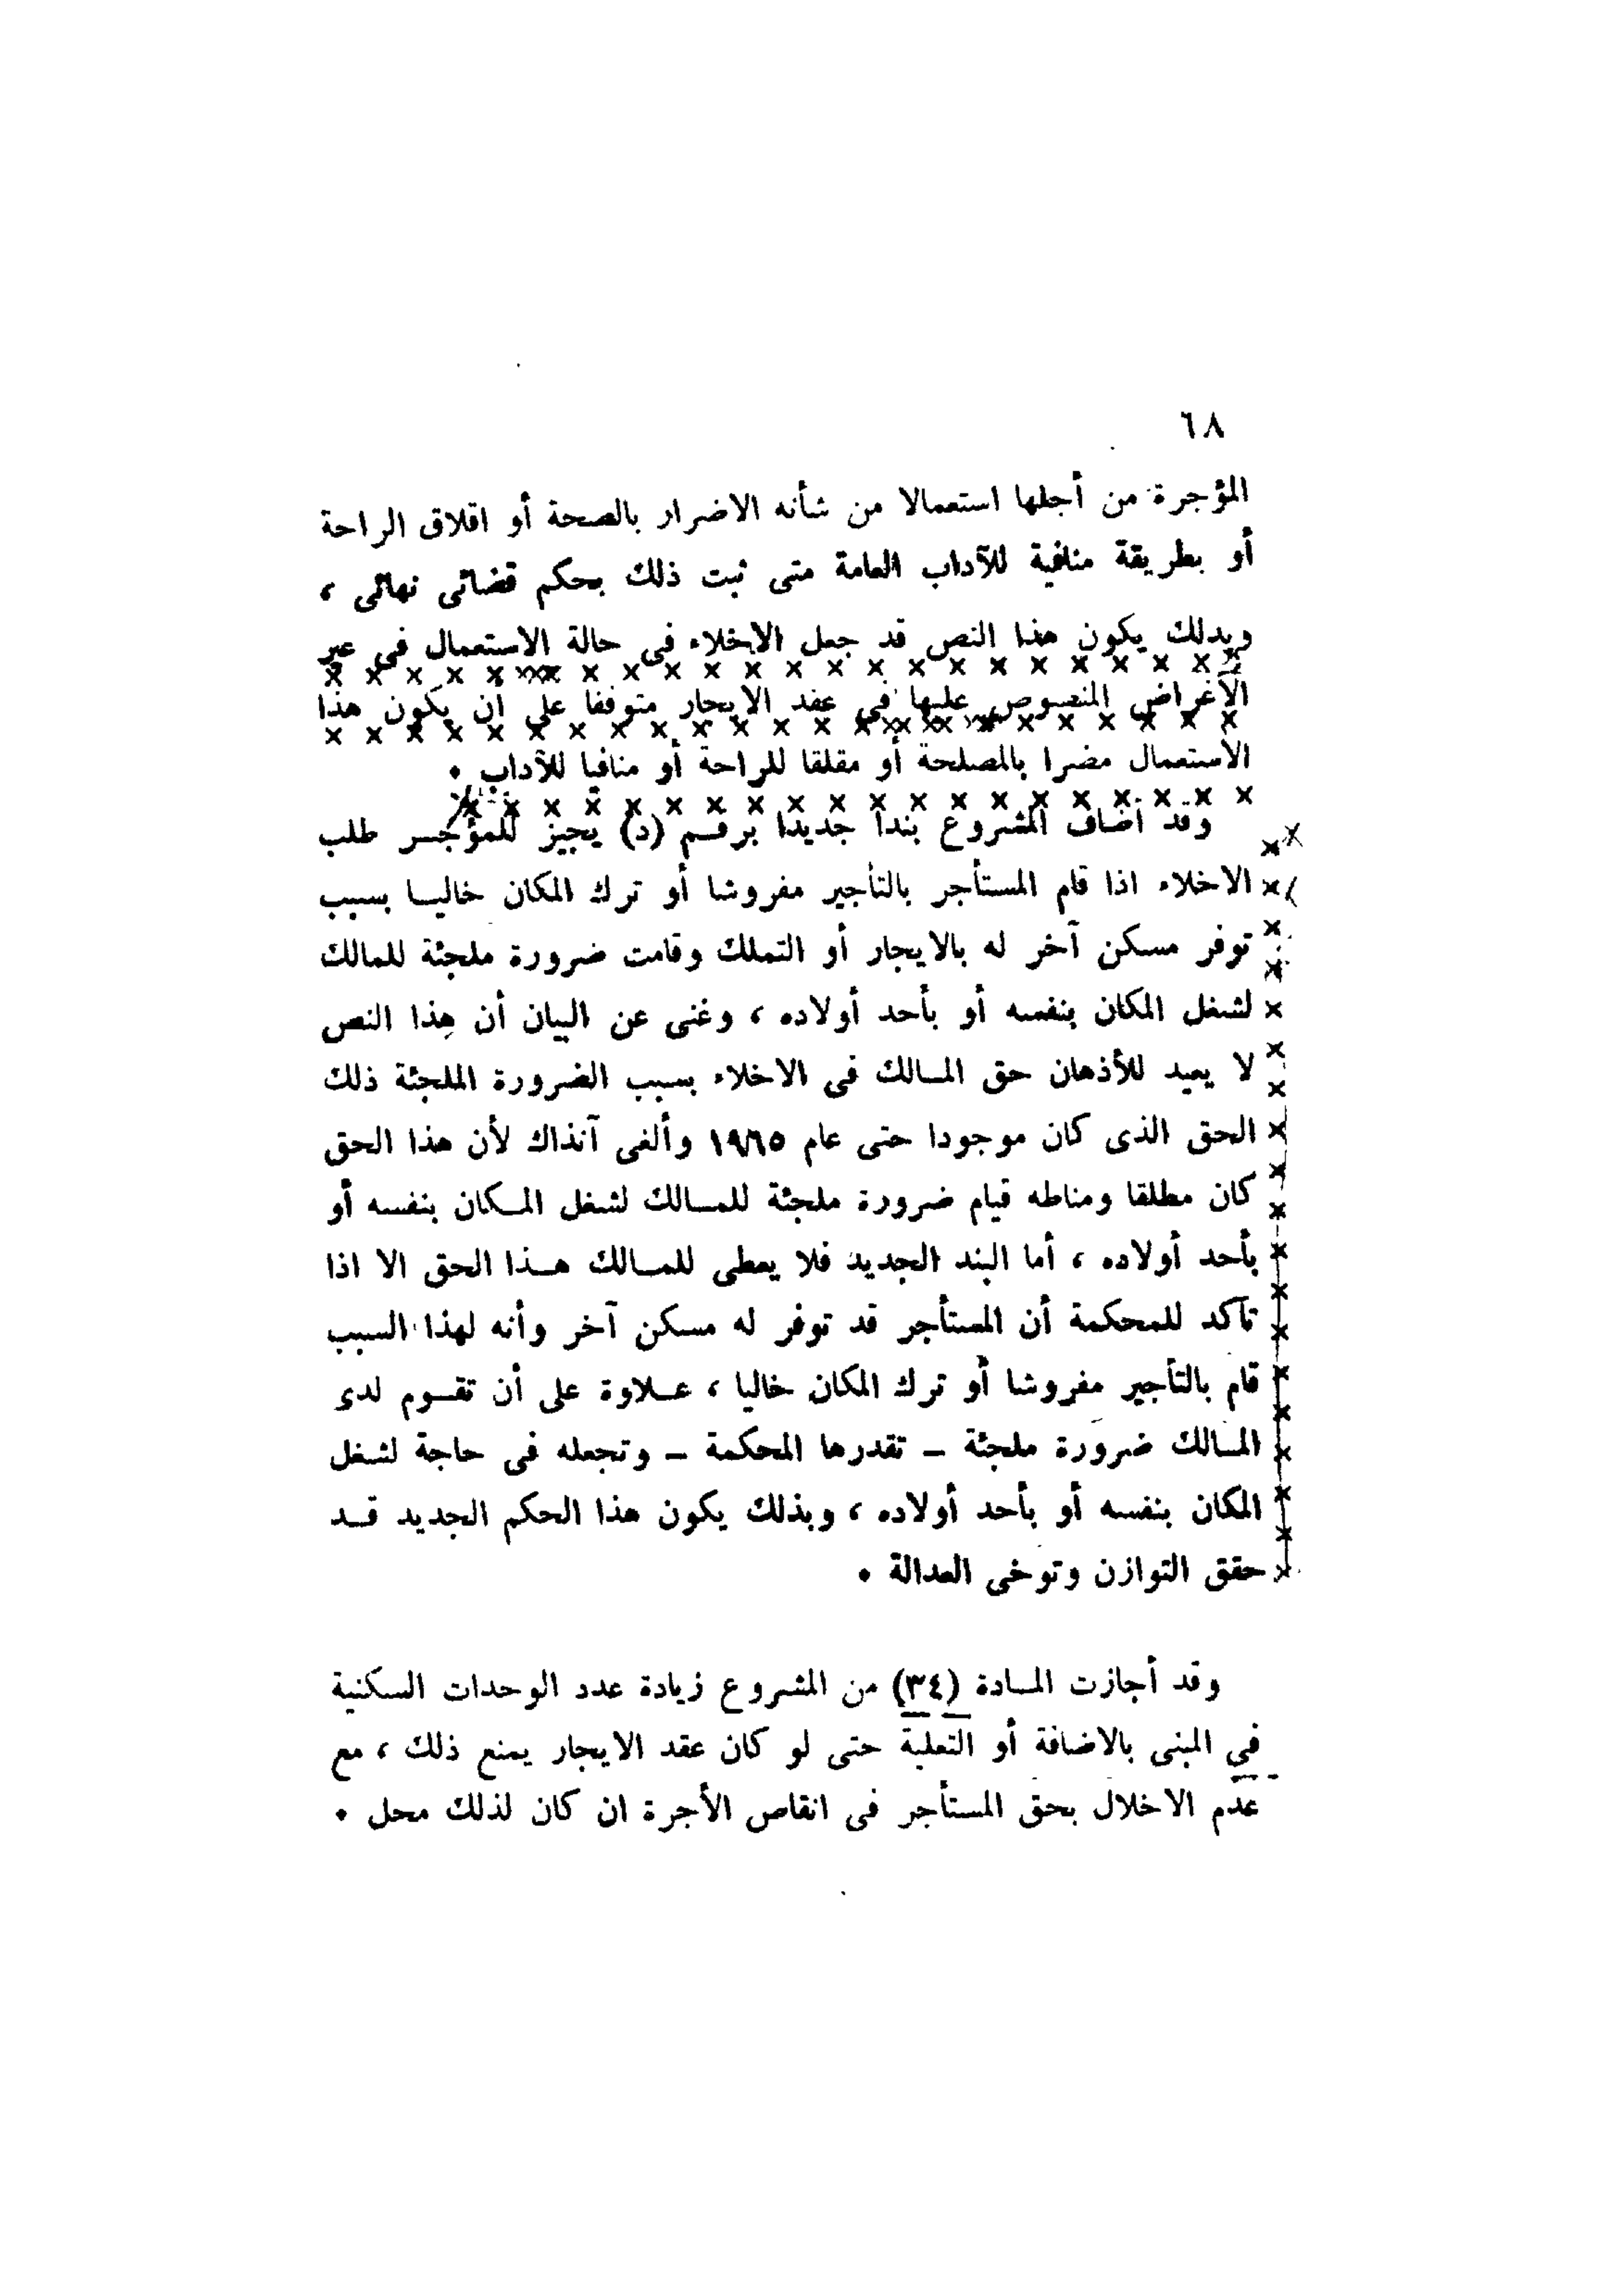 ٦٨
المؤجرة من أجلها استعمالا من شأنه الاضرار بالصحة أو اقلاق الراحة
أو بطريقة منافية للآداب العامة متى ثبت ذلك بحكم قضائى نهائى ،
وبذلك يكون هذا النص قد جعل الاخلاء فى حالة الاستعمال فى غير
الأغراض المنصوص عليها فى عقد الايجار متوقفا على أن يكون هذا
الاستعمال مضرا بالمصلحة أو مقلقا للراحة أو منافيا للآداب .
وقد أضاف المشروع بندا جديدا برقم (د) يجيز للمؤجر طلب
الاخلاء اذا قام المستأجر بالتأجير مفروشا أو ترك المكان خاليا بسبب
توفر مسكن آخر له بالايجار أو التملك وقامت ضرورة ملجئة للمالك
لشغل المكان بنفسه أو بأحد أولاده ، وغنى عن البيان أن هذا النص
لا يعيد للأذهان حق المالك فى الاخلاء بسبب الضرورة الملجئة ذلك
الحق الذى كان موجودا حتى عام ١٩٦٥ وألغى آنذاك لأن هذا الحق
كان مطلقا ومناطه قيام ضرورة ملجئة للمالك لشغل المكان بنفسه أو
بأحد أولاده ، أما البند الجديد فلا يعطى للمالك هذا الحق الا اذا
تأكد للمحكمة أن المستأجر قد توفر له مسكن آخر وأنه لهذا السبب
قام بالتأجير مفروشا أو ترك المكان خاليا ، علاوة على أن تقوم لدى
المالك ضرورة ملجئة – تقدرها المحكمة – وتجعله فى حاجة لشغل
المكان بنفسه أو بأحد أولاده ، وبذلك يكون هذا الحكم الجديد قد
حقق التوازن وتوخى العدالة .
وقد أجازت المادة (٣٤) من المشروع زيادة عدد الوحدات السكنية
في المبنى بالاضافة أو التعلية حتى لو كان عقد الايجار يمنع ذلك ، مع
عدم الاخلال بحق المستأجر فى انقاص الأجرة ان كان لذلك محل .